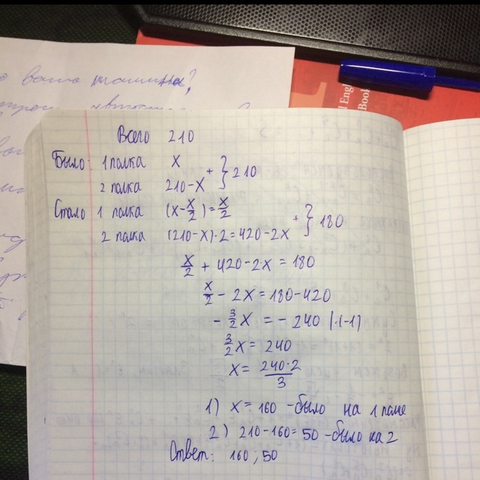 ваша машина?
English
Book
Всего 210
Было: 1 полка x
2 полка 210-x + } 210
Стало 1 полка (x-x/2)=x/2
2 полка (210-x)·2=420-2x + } 180
x/2 + 420-2x = 180
x/2 - 2x = 180-420
- 3/2 x = - 240 |·(-1)
3/2 x = 240
x = 240·2/3
1) x = 160 -было на 1 полке
2) 210-160=50 -было на 2
Ответ: 160; 50